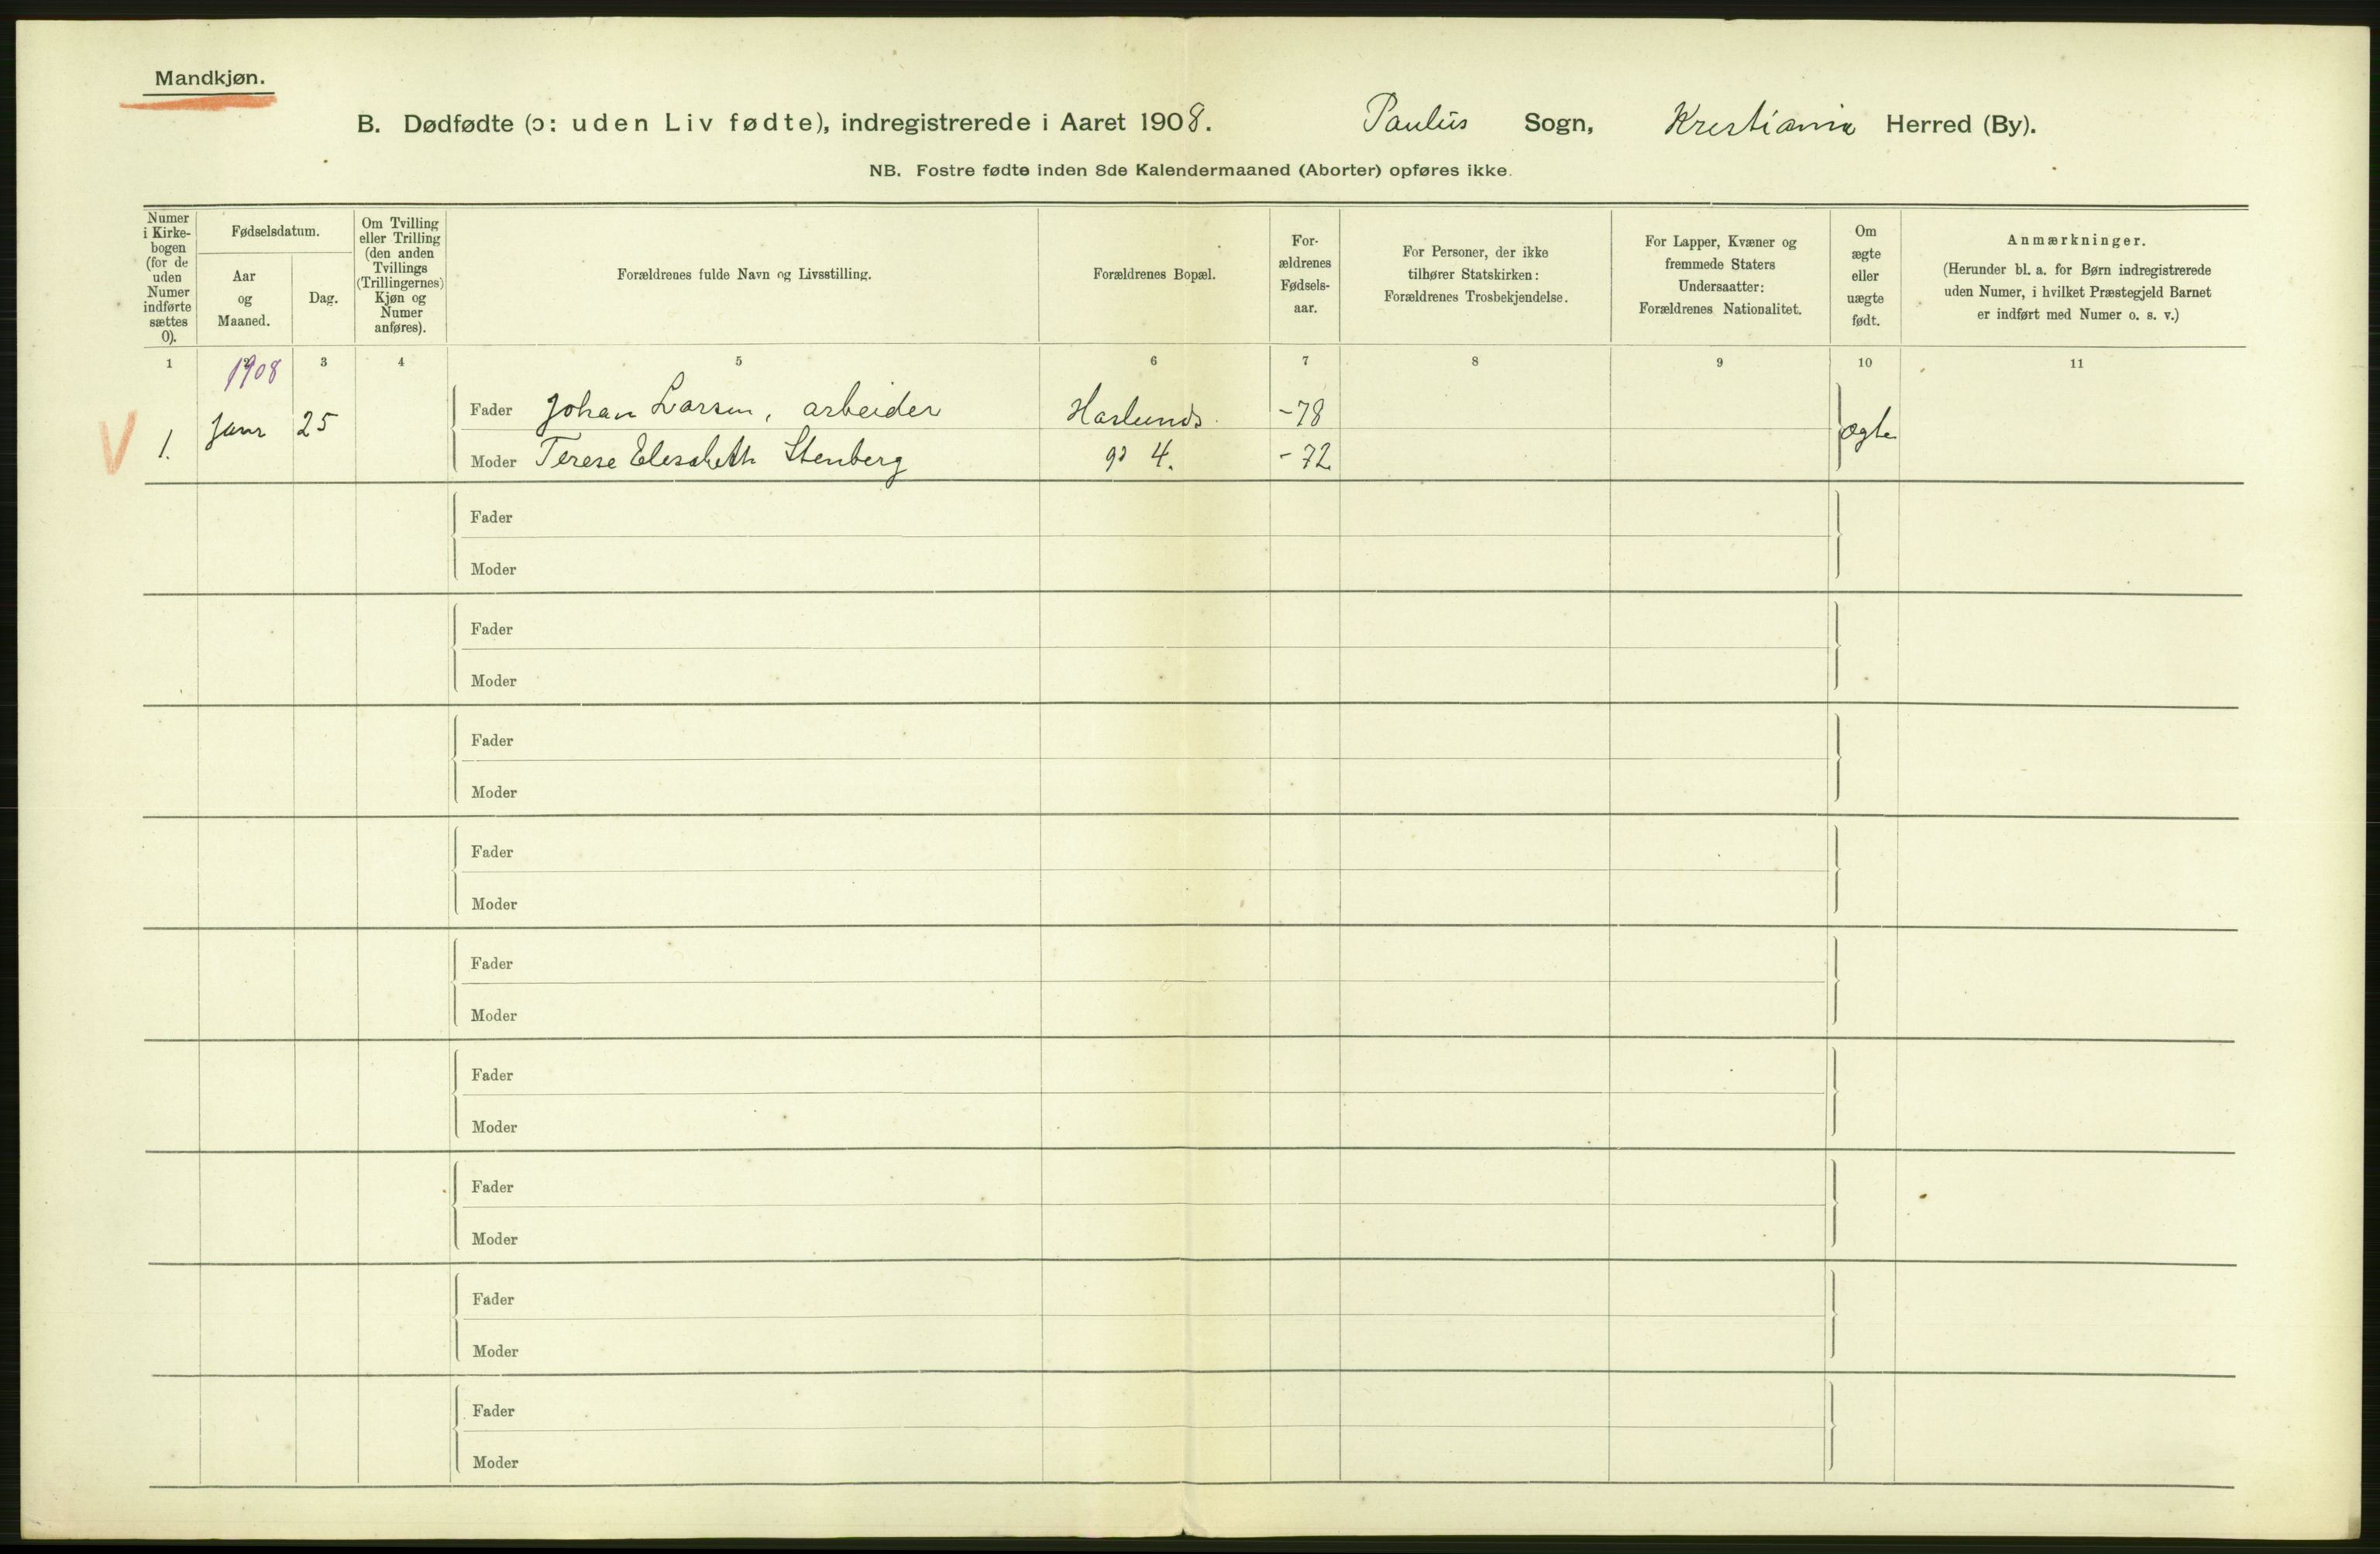 Mandkjøn.
B. Dødfødte (ɔ: uden Liv fødte), indregistrerede i Aaret 1908. Paulus Sogn, Kristiania Herred (By).
NB. Fostre fødte inden 8de Kalendermaaned (Aborter) opføres ikke.
Numer
i Kirke-
bogen
(for de
uden
Numer
indførte
sættes
0).
Fødselsdatum.
Aar
og
Maaned.
Dag.
Om Tvilling
eller Trilling
(den anden
Tvillings
(Trillingernes)
Kjøn og
Numer
anføres).
Forældrenes fulde Navn og Livsstilling.
Forældrenes Bopæl.
For-
ældrenes
Fødsels-
aar.
For Personer, der ikke
tilhører Statskirken:
Forældrenes Trosbekjendelse.
For Lapper, Kvæner og
fremmede Staters
Undersaatter:
Forældrenes Nationalitet.
Om
ægte
eller
uægte
født.
Anmærkninger.
(Herunder bl. a. for Børn indregistrerede
uden Numer, i hvilket Præstegjeld Barnet
er indført med Numer o. s. v.)
1 2 3 4 5 6 7 8 9 10 11
1908
V 1. Janr 25 Fader Johan Larsen, arbeider Haslunds -78 ægte
Moder Terese Elisabeth Stenberg gd 4. -72
Fader
Moder
Fader
Moder
Fader
Moder
Fader
Moder
Fader
Moder
Fader
Moder
Fader
Moder
Fader
Moder
Fader
Moder